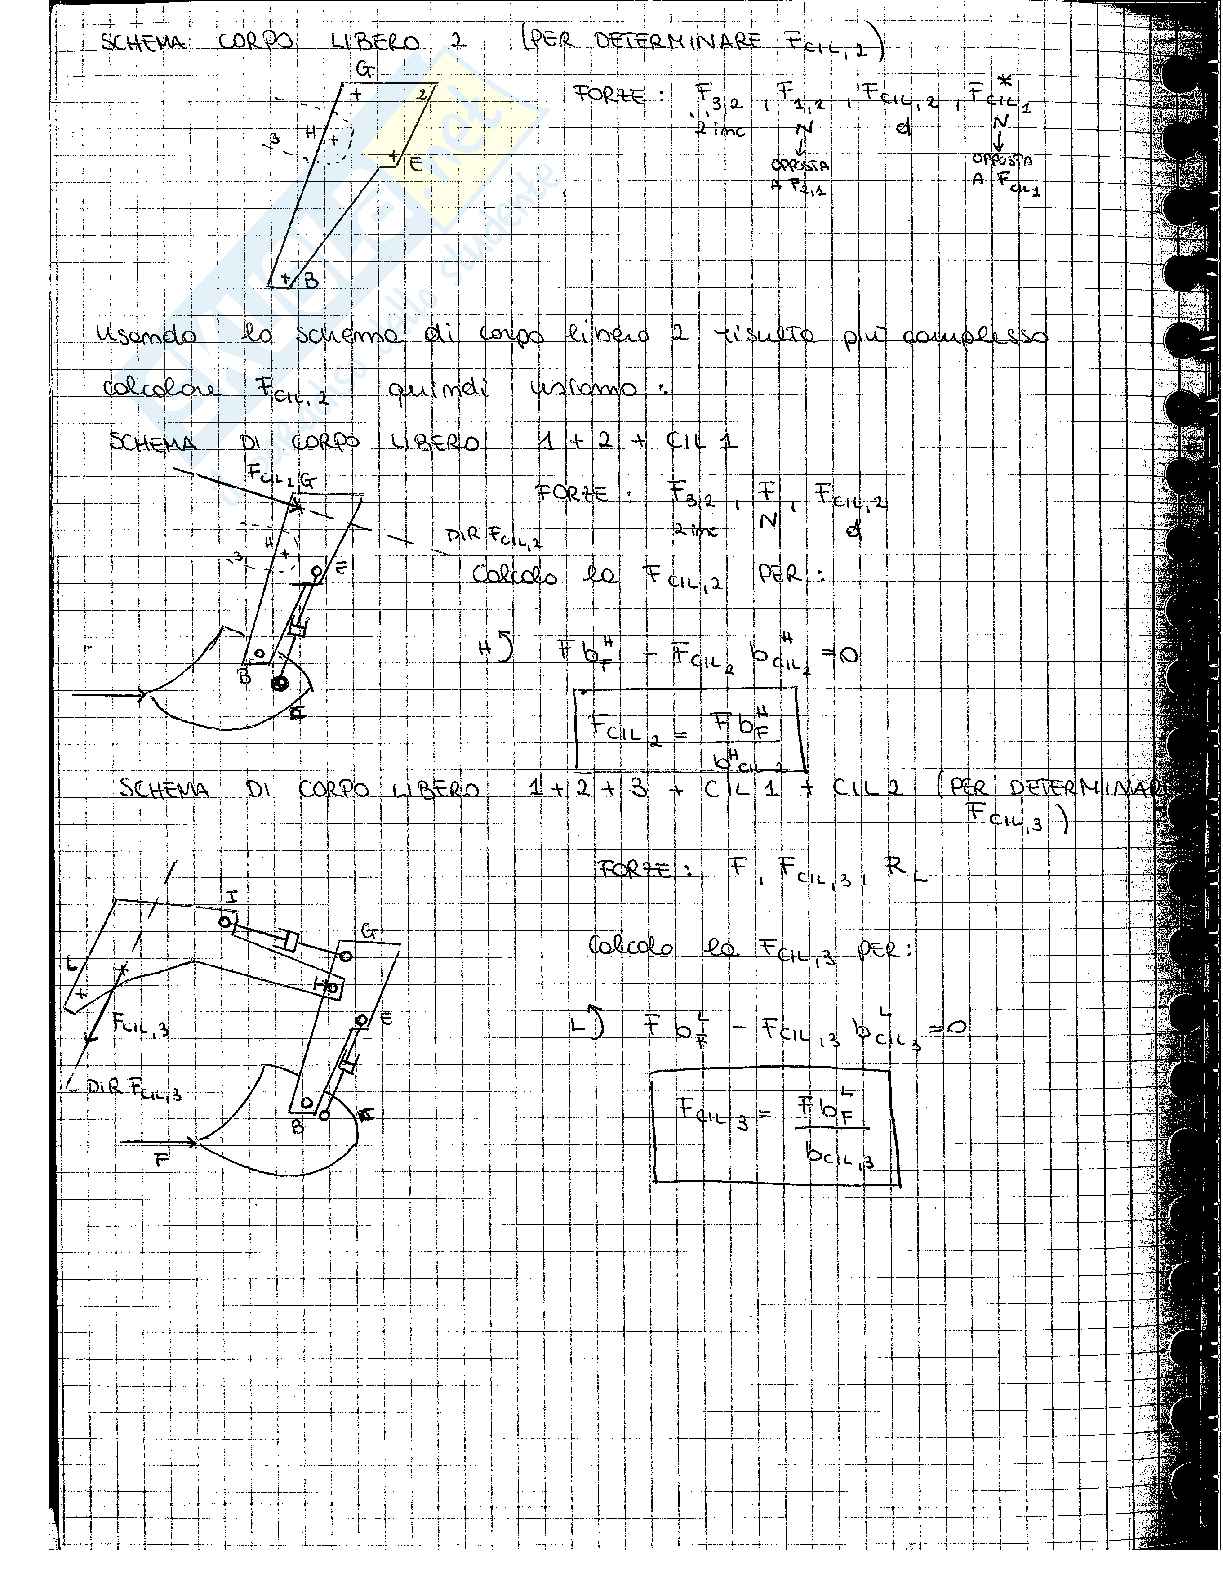 SCHEMA CORPO LIBERO 2 (PER DETERMINARE F_CIL,2)
G
+ 2
3 H +
+ E
+ B
FORZE: F_3,2 , F_1,2 , F_CIL,2 , F*_CIL1
2 inc N d N
OPPOSTA A F_2,1
OPPOSTA A F_CIL1
Usando lo schema di corpo libero 2 risulta più complesso
calcolare F_CIL,2 quindi usiamo:
SCHEMA DI CORPO LIBERO 1 + 2 + CIL 1
F_CIL2 G
DIR F_CIL,2
H +
3
E
B
FORZE: F_3,2 , F , F_CIL,2
2 inc N d
Calcolo la F_CIL,2 PER:
H F b_F^H - F_CIL2 b_CIL2^H = 0
F_CIL2 = F b_F^H / b^H_CIL2
SCHEMA DI CORPO LIBERO 1+2+3 + CIL1 + CIL2 (PER DETERMINAR
F_CIL,3)
I
G
L
+
H
F_CIL,3
E
DIR F_CIL,3
B
F
FORZE: F, F_CIL,3, R_L
Calcolo la F_CIL,3 PER:
L F b_F^L - F_CIL,3 b_CIL3^L = 0
F_CIL3 = F b_F^L / b_CIL,3